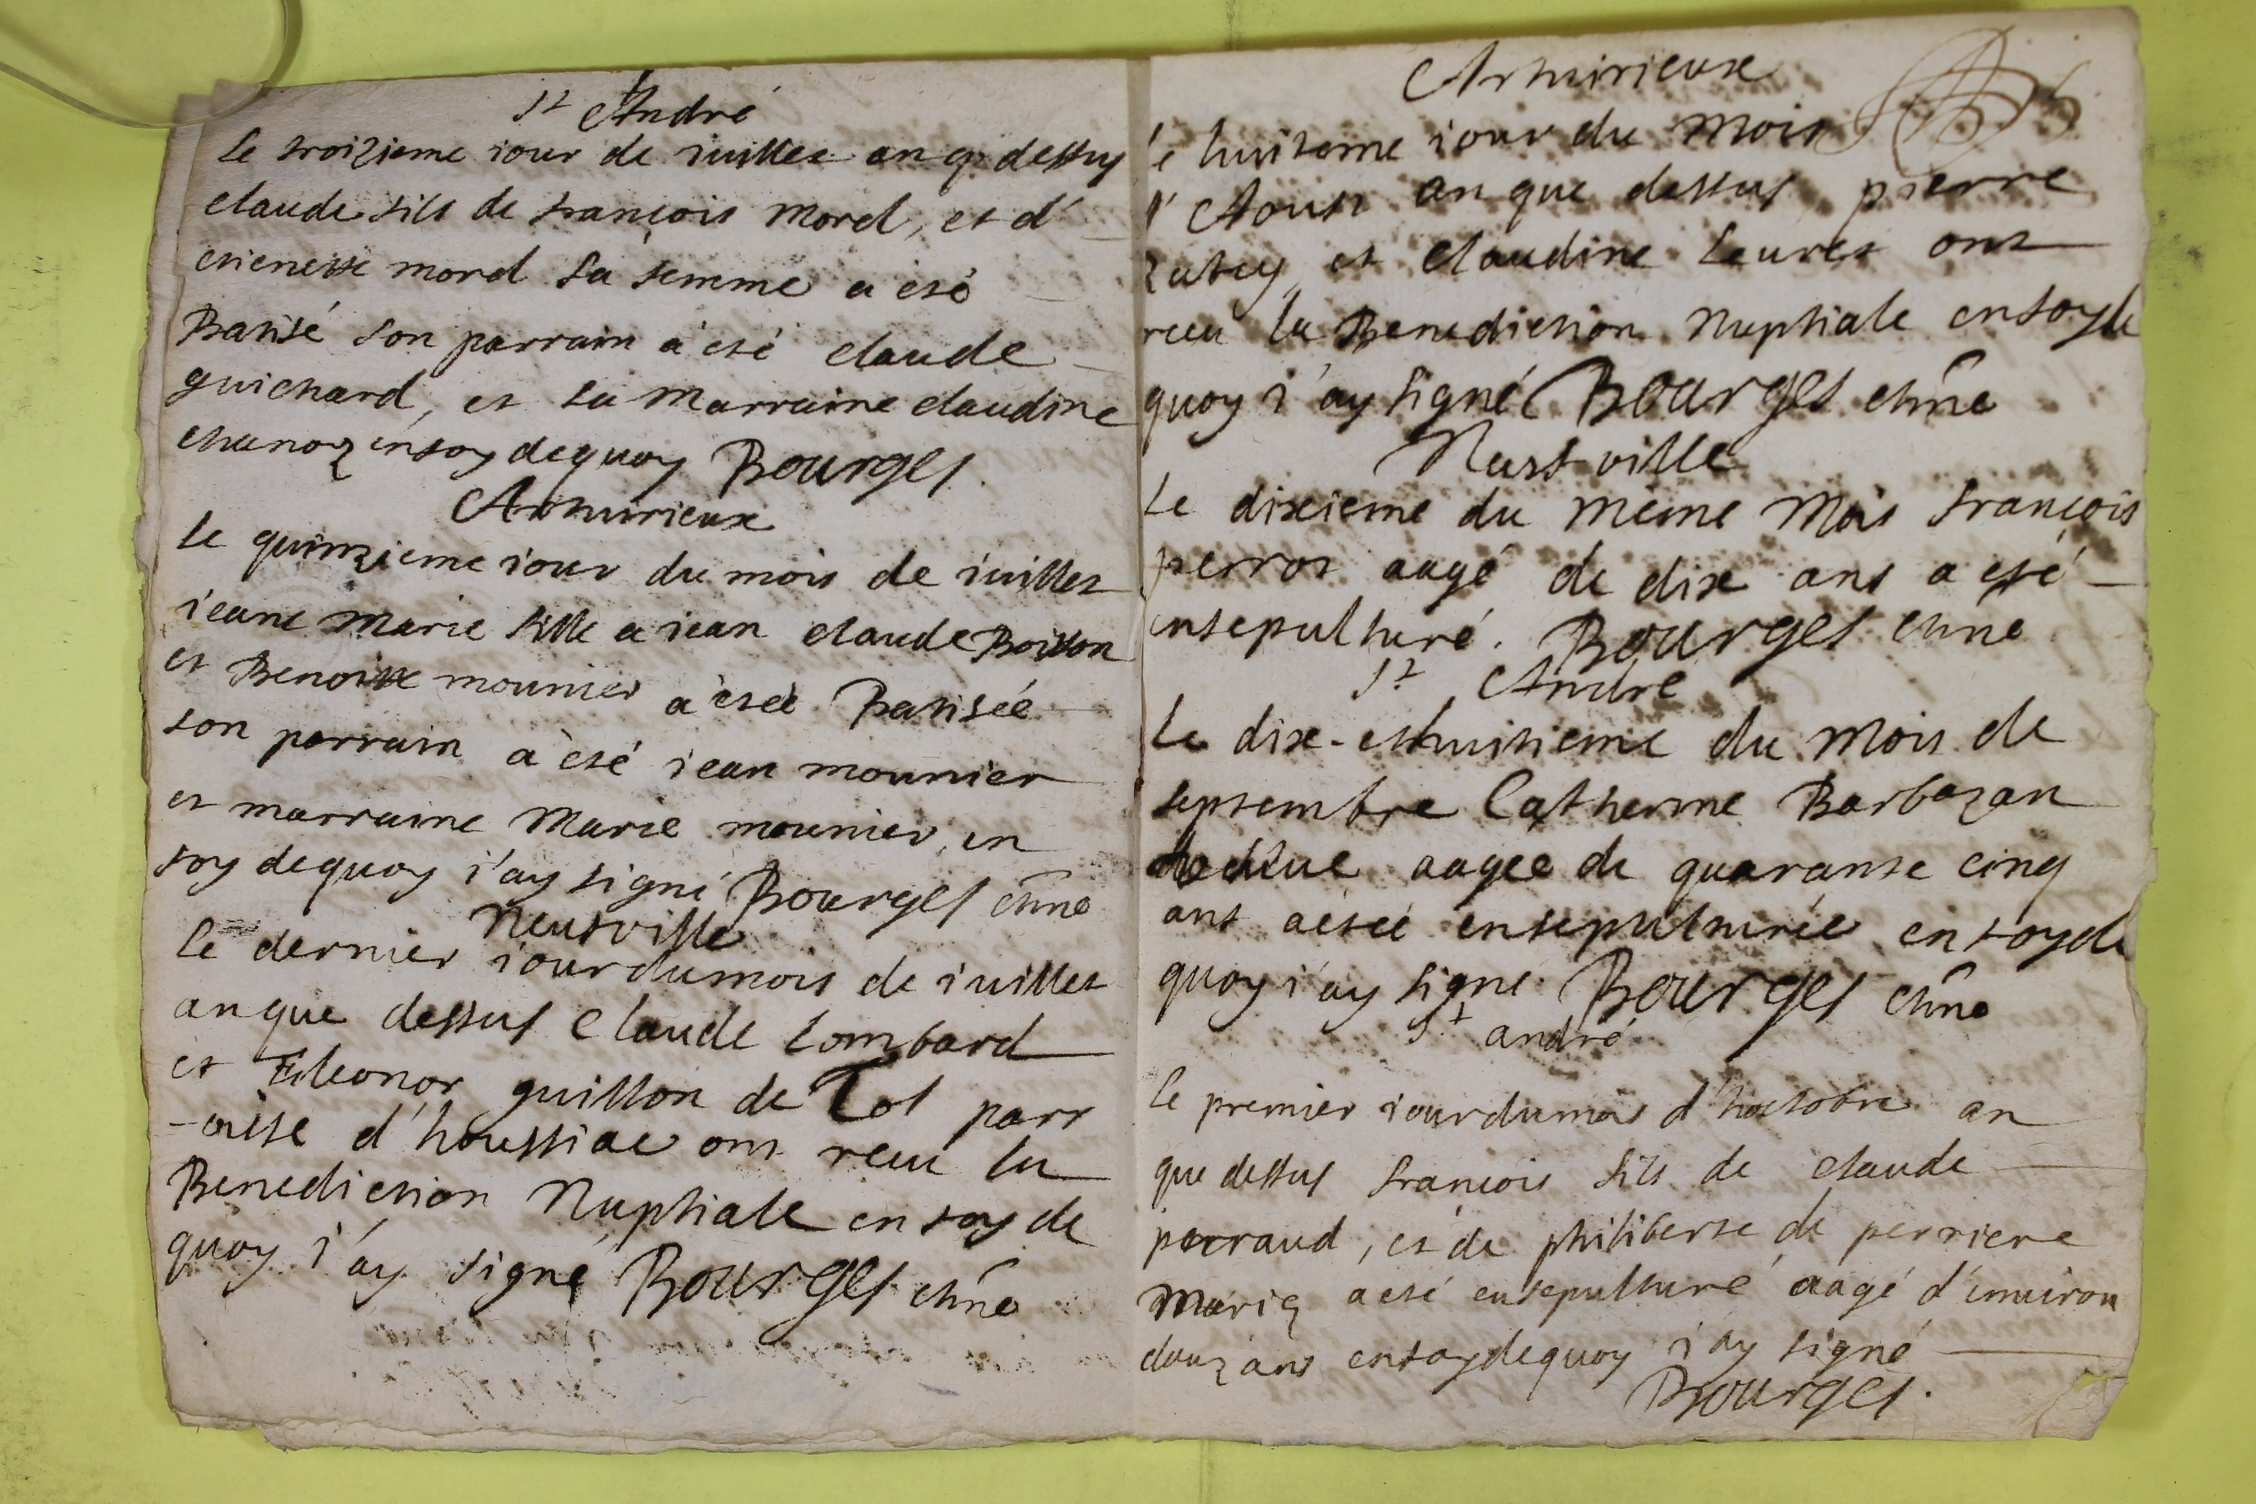 St André
le troizieme iour de iuillet an q dessus
claude fils de françois morel, et d'
etienette morel sa femme a été
Batisé son parrain a été claude
guichard, et sa marraine claudine
chanoz en foy de quoy Bourges
Arthurieux
le quinzieme iour du mois de iuillet
ieane marie fille a iean claude Boisson
et Benoitte mounier a étée Batisée
son parrain a été iean mounier
et marraine marie mounier, en
foy de quoy i'ay signé Bourges
Neufville
le dernier iour du mois de iuillet
an que dessus claude Lombard
et Eleonor guillon de parr
-oisse d'houssiac ont receu la
Benediction Nuptiale en foy de
quoy i'ay signé Bourges
Arthurieux
le huitieme iour du mois
d'Aoust an que dessus pierre
et claudine Leuret ont
receu la Benediction Nuptiale en foy de
quoy i'ay signé Bourges
Neufville
Le dixieme du meme mois françois
perrot aagé de dix ans a été
ensepulturé. Bourges
St André
Le dix-et huitieme du mois de
septembre Catherine Barbazan
aagée de quarante cinq
ans a étée ensepulturée en foy de
quoy i'ay signé Bourges
St andré
le premier iour du mois d'hoctobre an
que dessus françois fils de claude
perraud, et de philiberte de perriere
mariez a été ensepulturé aagé d'enuiron
douz ans en foy de quoy i'ay signé
Bourges.